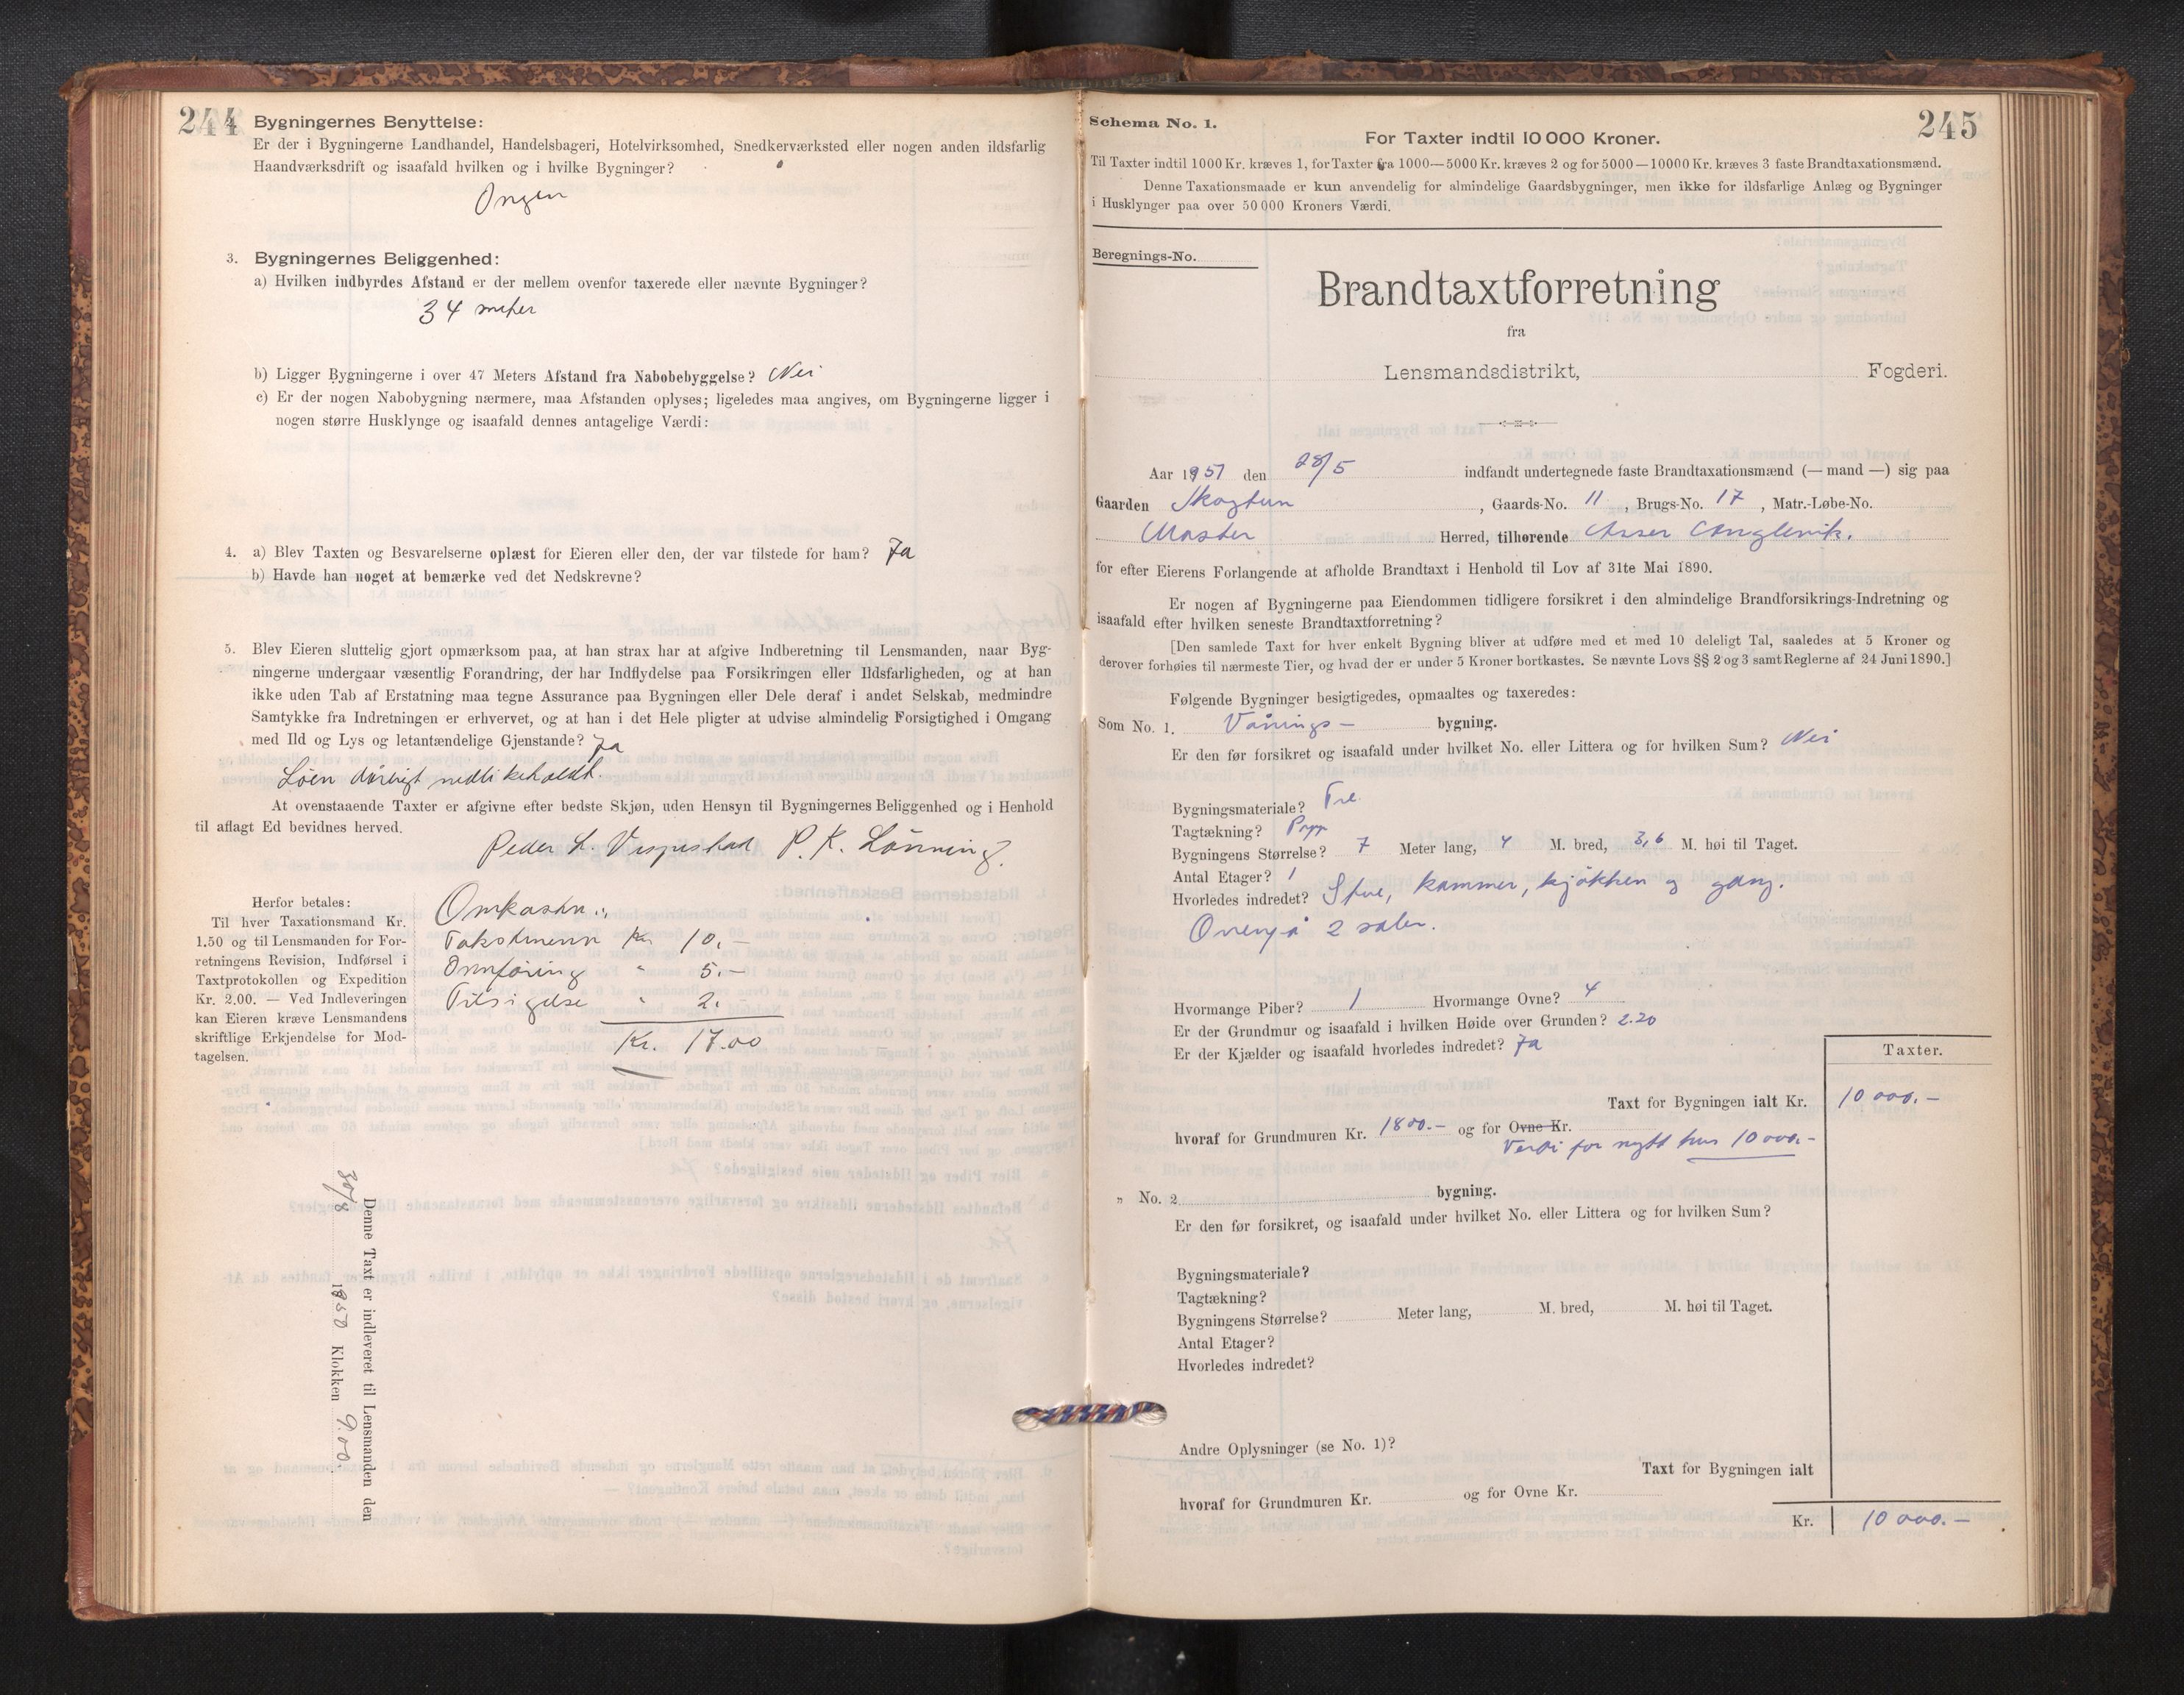 244
Bygningernes Benyttelse:
Er der i Bygningerne Landhandel, Handelsbageri, Hotelvirksomhed, Snedkerværksted eller nogen anden ildsfarlig
Haandværksdrift og isaafald hvilken og i hvilke Bygninger?
Ingen
3. Bygningernes Beliggenhed:
a) Hvilken indbyrdes Afstand er der mellem ovenfor taxerede eller nævnte Bygninger?
34 meter
b) Ligger Bygningerne i over 47 Meters Afstand fra Nabobebyggelse? Nei
c) Er der nogen Nabobygning nærmere, maa Afstanden oplyses; ligeledes maa angives, om Bygningerne ligger i
nogen større Husklynge og isaafald dennes antagelige Værdi:
4. a) Blev Taxten og Besvarelserne oplæst for Eieren eller den, der var tilstede for ham? Ja
b) Havde han noget at bemærke ved det Nedskrevne?
5. Blev Eieren sluttelig gjort opmærksom paa, at han strax har at afgive Indberetning til Lensmanden, naar Byg-
ningerne undergaar væsentlig Forandring, der har Indflydelse paa Forsikringen eller Ildsfarligheden, og at han
ikke uden Tab af Erstatning maa tegne Assurance paa Bygningen eller Dele deraf i andet Selskab, medmindre
Samtykke fra Indretningen er erhvervet, og at han i det Hele pligter at udvise almindelig Forsigtighed i Omgang
med Ild og Lys og letantændelige Gjenstande? Ja
Løen dårligt vedlikeholdt.
At ovenstaaende Taxter er afgivne efter bedste Skjøn, uden Hensyn til Bygningernes Beliggenhed og i Henhold
til aflagt Ed bevidnes herved.
Peder L. P. K. Lønning.
Herfor betales:
Til hver Taxationsmand Kr.
1.50 og til Lensmanden for For-
retningens Revision, Indførsel i
Taxtprotokollen og Expedition
Kr. 2.00. — Ved Indleveringen
kan Eieren kræve Lensmandens
skriftlige Erkjendelse for Mod-
tagelsen.
Omkostn.:
Takstmenn Kr. 10.-
Innføring " 5.-
Tilsigelse " 2.
Kr. 17.00
Denne Taxt er indleveret til Lensmanden den
30/8 1950 Klokken 9.00.
245
Schema No. 1.
For Taxter indtil 10 000 Kroner.
Til Taxter indtil 1000 Kr. kræves 1, for Taxter fra 1000—5000 Kr. kræves 2 og for 5000—10000 Kr. kræves 3 faste Brandtaxationsmænd.
Denne Taxationsmaade er kun anvendelig for almindelige Gaardsbygninger, men ikke for ildsfarlige Anlæg og Bygninger
i Husklynger paa over 50 000 Kroners Værdi.
Beregnings-No.
Brandtaxtforretning
fra
Lensmandsdistrikt, Fogderi.
Aar 1951 den 28/5 indfandt undertegnede faste Brandtaxationsmænd (— mand —) sig paa
Gaarden Skogtun, Gaards-No. 11, Brugs-No. 17, Matr.-Løbe-No.
Moster Herred, tilhørende Asser Anglevik.
for efter Eierens Forlangende at afholde Brandtaxt i Henhold til Lov af 31te Mai 1890.
Er nogen af Bygningerne paa Eiendommen tidligere forsikret i den almindelige Brandforsikrings-Indretning og
isaafald efter hvilken seneste Brandtaxtforretning?
[Den samlede Taxt for hver enkelt Bygning bliver at udføre med et med 10 deleligt Tal, saaledes at 5 Kroner og
derover forhøies til nærmeste Tier, og hvad der er under 5 Kroner bortkastes. Se nævnte Lovs §§ 2 og 3 samt Reglerne af 24 Juni 1890.]
Følgende Bygninger besigtigedes, opmaaltes og taxeredes:
Som No. 1. Vånings- bygning.
Er den før forsikret og isaafald under hvilket No. eller Littera og for hvilken Sum? Nei
Bygningsmateriale? Tre
Tagtækning? Papp
Bygningens Størrelse? 7 Meter lang, 4 M. bred, 3,6 M. høi til Taget.
Antal Etager? 1
Hvorledes indredet? Stue, kammer, kjøkken og gang.
Ovenpå 2 saler.
Hvormange Piber? 1 Hvormange Ovne? 4
Er der Grundmur og isaafald i hvilken Høide over Grunden? 2.20
Er der Kjælder og isaafald hvorledes indredet? Ja
Taxter.
Taxt for Bygningen ialt Kr. 10 000.-
hvoraf for Grundmuren Kr. 1800.- og for Ovne Kr.
Verdi for nytt hus 10 000.-
" No. 2 bygning.
Er den før forsikret, og isaafald under hvilket No. eller Littera og for hvilken Sum?
Bygningsmateriale?
Tagtækning?
Bygningens Størrelse? Meter lang, M. bred, M. høi til Taget.
Antal Etager?
Hvorledes indredet?
Andre Oplysninger (se No. 1)?
Taxt for Bygningen ialt
hvoraf for Grundmuren Kr. og for Ovne Kr.
Kr. 10 000.-